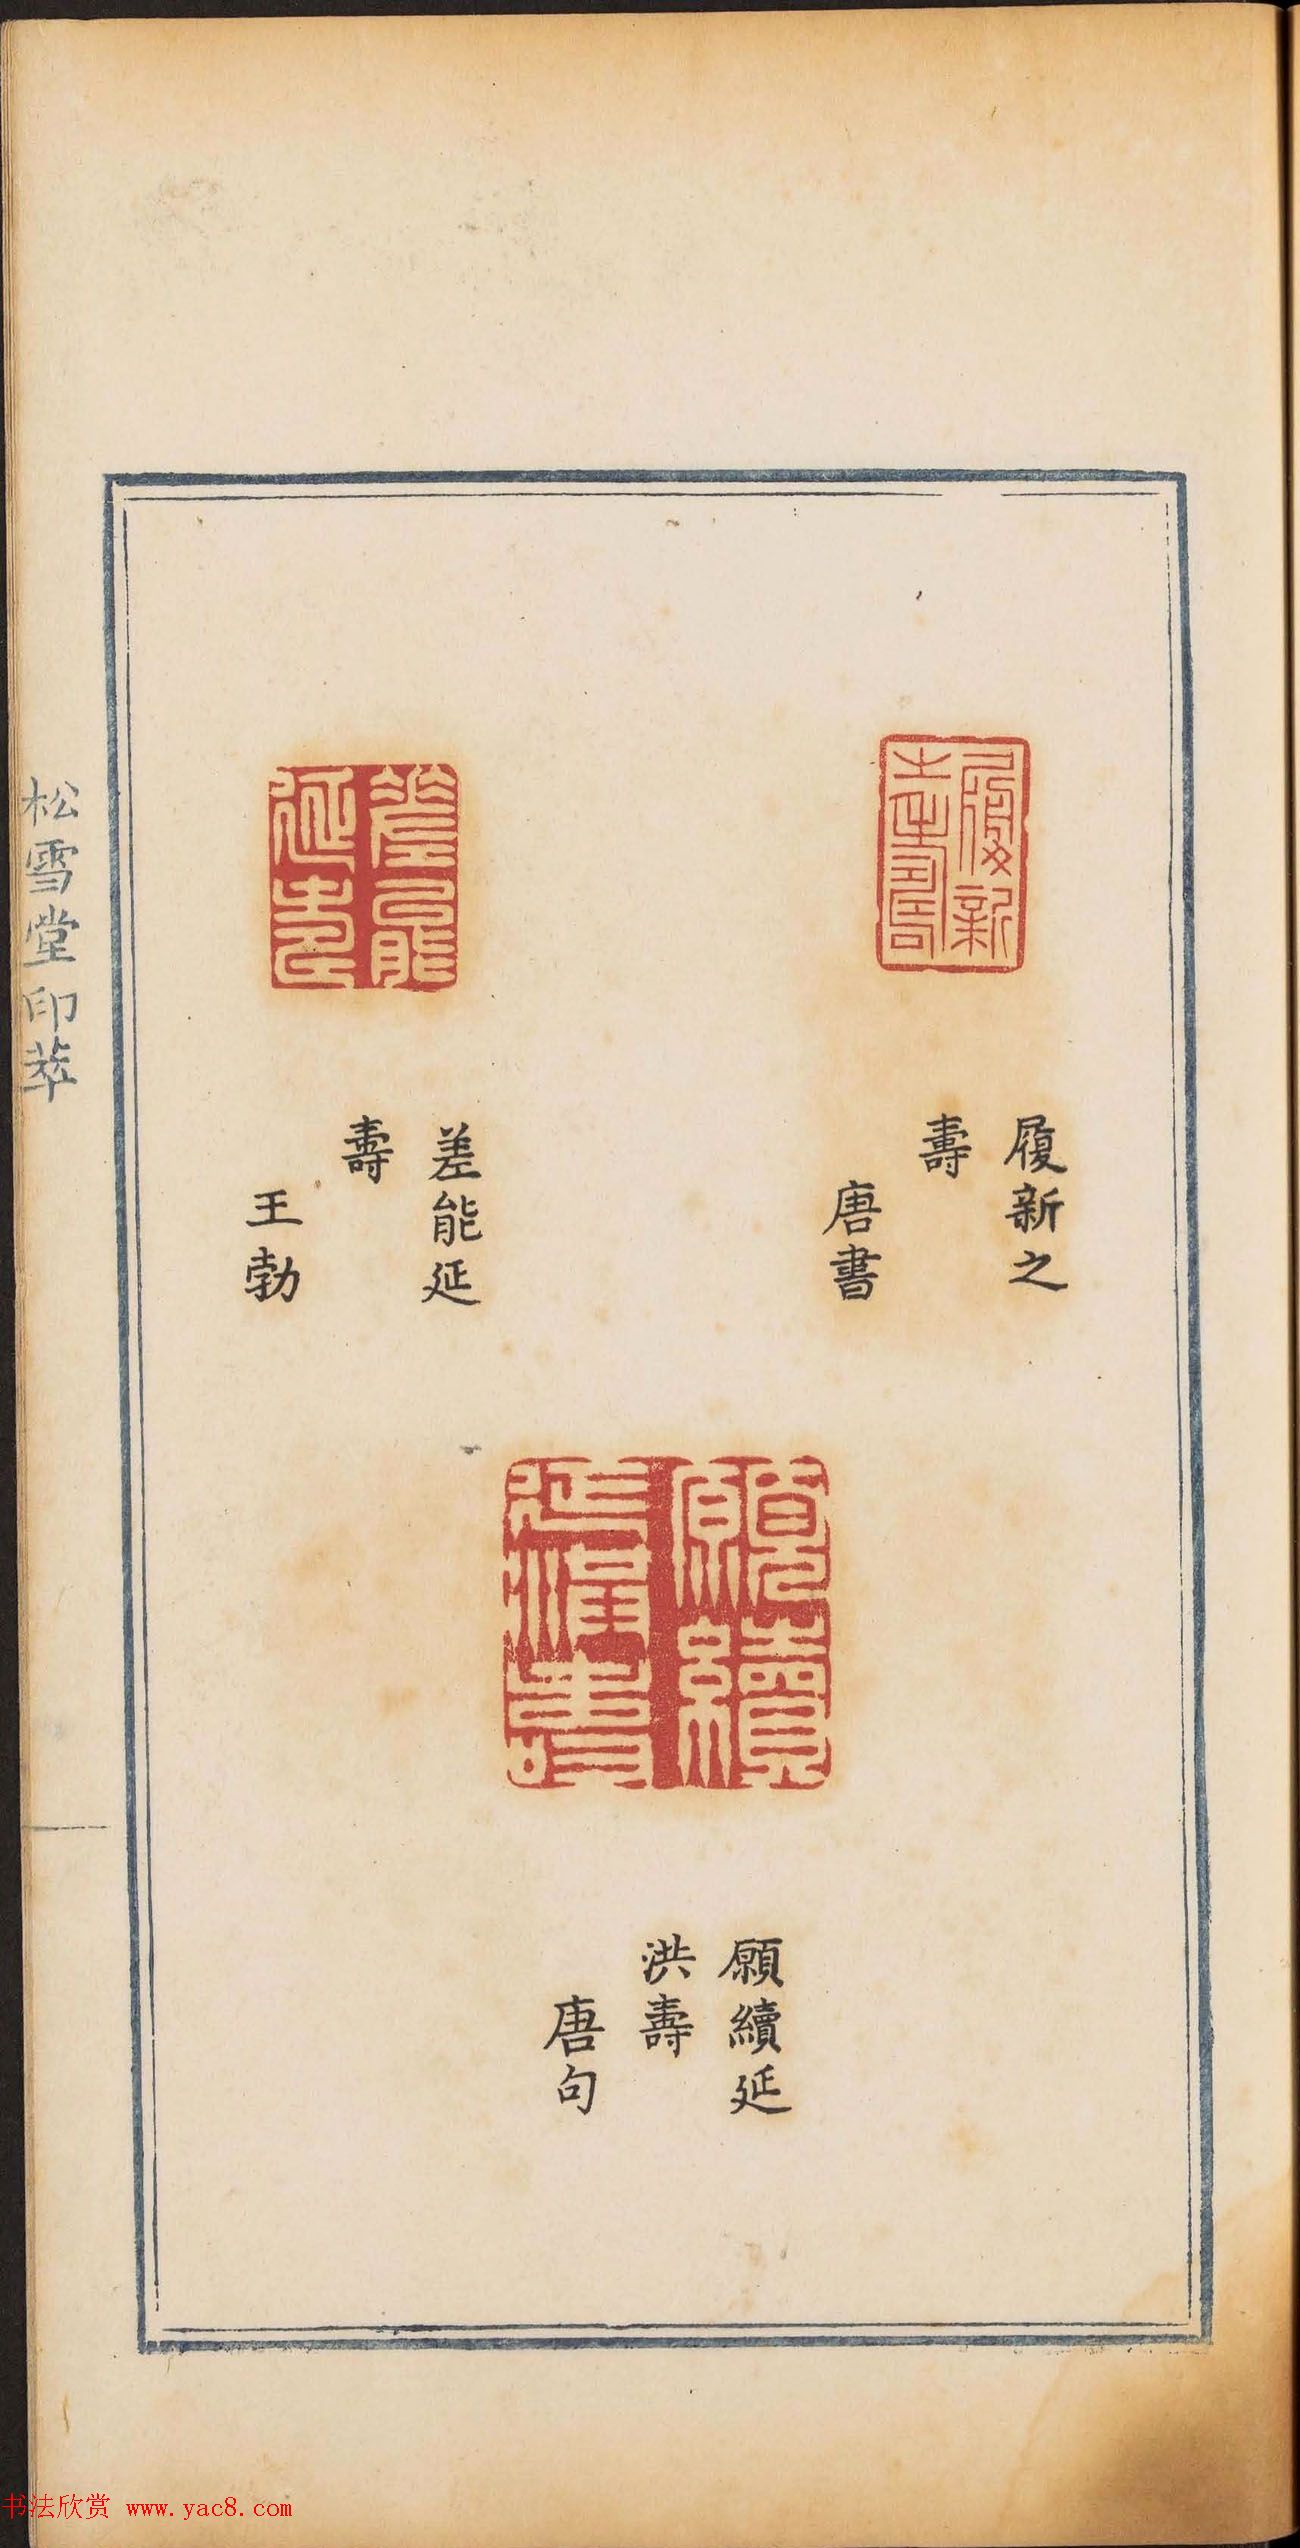 履新
之壽
履新之
壽
唐書
差能
延壽
差能延
壽
王勃
願續
延洪壽
願續延
洪壽
唐句
松雪堂印萃
书法欣赏 www.yac8.com